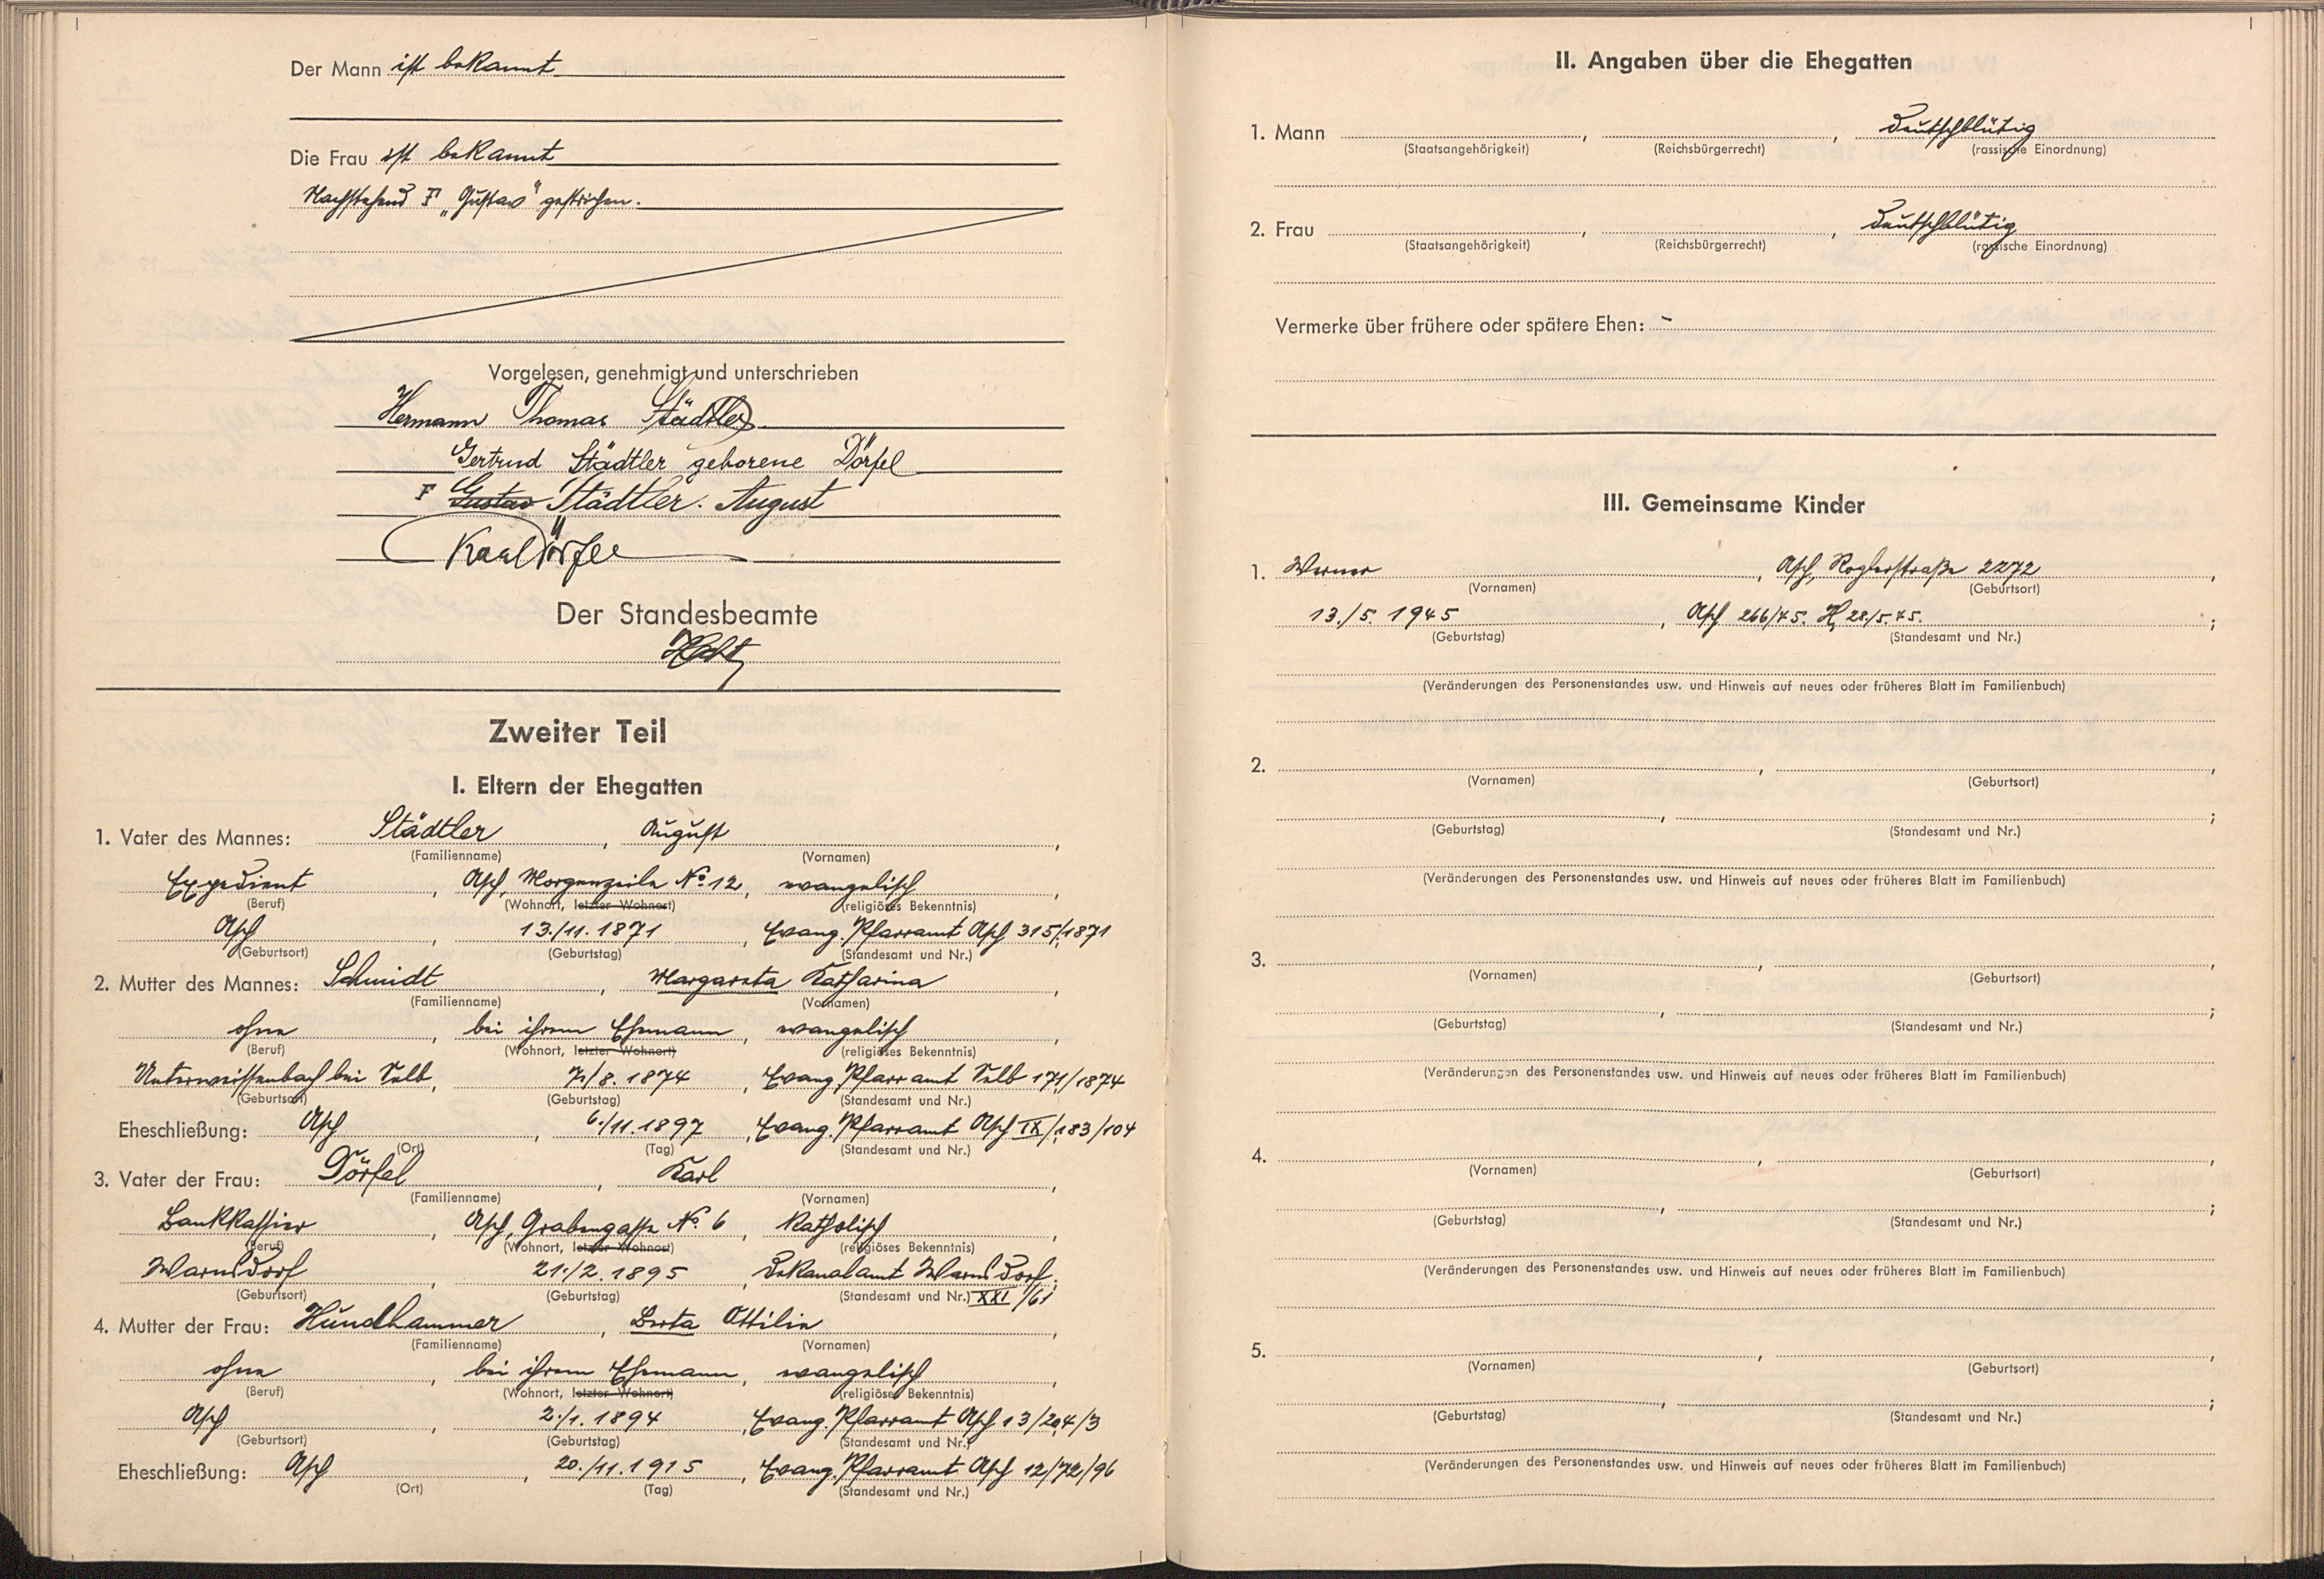 Der Mann ist bekannt
Die Frau ist bekannt
Nachstehend F „Gustav“ gestrichen.
Vorgelesen, genehmigt und unterschrieben
Hermann Thomas Städtler
Gertrud Städtler geborene Dörfel
F Gustav Städtler. August
Karl Dörfel
Der Standesbeamte
Zweiter Teil
I. Eltern der Ehegatten
1. Vater des Mannes: Städtler, August,
(Familienname) (Vornamen)
Expedient, Asch, Morgenzeile No. 12, evangelisch,
(Beruf) (Wohnort, letzter Wohnort) (religiöses Bekenntnis)
Asch, 13./11. 1871, Evang. Pfarramt Asch 315/1871
(Geburtsort) (Geburtstag) (Standesamt und Nr.)
2. Mutter des Mannes: Schmidt, Margareta Katharina,
(Familienname) (Vornamen)
ohne, bei ihrem Ehemann, evangelisch,
(Beruf) (Wohnort, letzter Wohnort) (religiöses Bekenntnis)
Unterweissenbach bei Selb, 7./8. 1874, Evang. Pfarramt Selb 171/1874
(Geburtsort) (Geburtstag) (Standesamt und Nr.)
Eheschließung: Asch, 6./11. 1897, Evang. Pfarramt Asch IX/183/104
(Ort) (Tag) (Standesamt und Nr.)
3. Vater der Frau: Dörfel, Karl,
(Familienname) (Vornamen)
Bankkassier, Asch, Grabengasse No. 6, katholisch,
(Beruf) (Wohnort, letzter Wohnort) (religiöses Bekenntnis)
Warnsdorf, 21./2. 1895, Dekanalamt Warnsdorf;
(Geburtsort) (Geburtstag) (Standesamt und Nr.) XXI/61
4. Mutter der Frau: Hundhammer, Berta Ottilie,
(Familienname) (Vornamen)
ohne, bei ihrem Ehemann, evangelisch,
(Beruf) (Wohnort, letzter Wohnort) (religiöses Bekenntnis)
Asch, 2./1. 1894, Evang. Pfarramt Asch 13/204/3
(Geburtsort) (Geburtstag) (Standesamt und Nr.)
Eheschließung: Asch, 20./11. 1915, Evang. Pfarramt Asch 12/72/96
(Ort) (Tag) (Standesamt und Nr.)
II. Angaben über die Ehegatten
1. Mann , , deutschblütig
(Staatsangehörigkeit) (Reichsbürgerrecht) (rassische Einordnung)
2. Frau , , deutschblütig
(Staatsangehörigkeit) (Reichsbürgerrecht) (rassische Einordnung)
Vermerke über frühere oder spätere Ehen: -
III. Gemeinsame Kinder
1. Werner, Asch, Roglerstraße 2272,
(Vornamen) (Geburtsort)
13./5. 1945, Asch 266/45. H, 28/5. 45.;
(Geburtstag) (Standesamt und Nr.)
(Veränderungen des Personenstandes usw. und Hinweis auf neues oder früheres Blatt im Familienbuch)
2. , ,
(Vornamen) (Geburtsort)
, ;
(Geburtstag) (Standesamt und Nr.)
(Veränderungen des Personenstandes usw. und Hinweis auf neues oder früheres Blatt im Familienbuch)
3. , ,
(Vornamen) (Geburtsort)
, ;
(Geburtstag) (Standesamt und Nr.)
(Veränderungen des Personenstandes usw. und Hinweis auf neues oder früheres Blatt im Familienbuch)
4. , ,
(Vornamen) (Geburtsort)
, ;
(Geburtstag) (Standesamt und Nr.)
(Veränderungen des Personenstandes usw. und Hinweis auf neues oder früheres Blatt im Familienbuch)
5. , ,
(Vornamen) (Geburtsort)
, ;
(Geburtstag) (Standesamt und Nr.)
(Veränderungen des Personenstandes usw. und Hinweis auf neues oder früheres Blatt im Familienbuch)